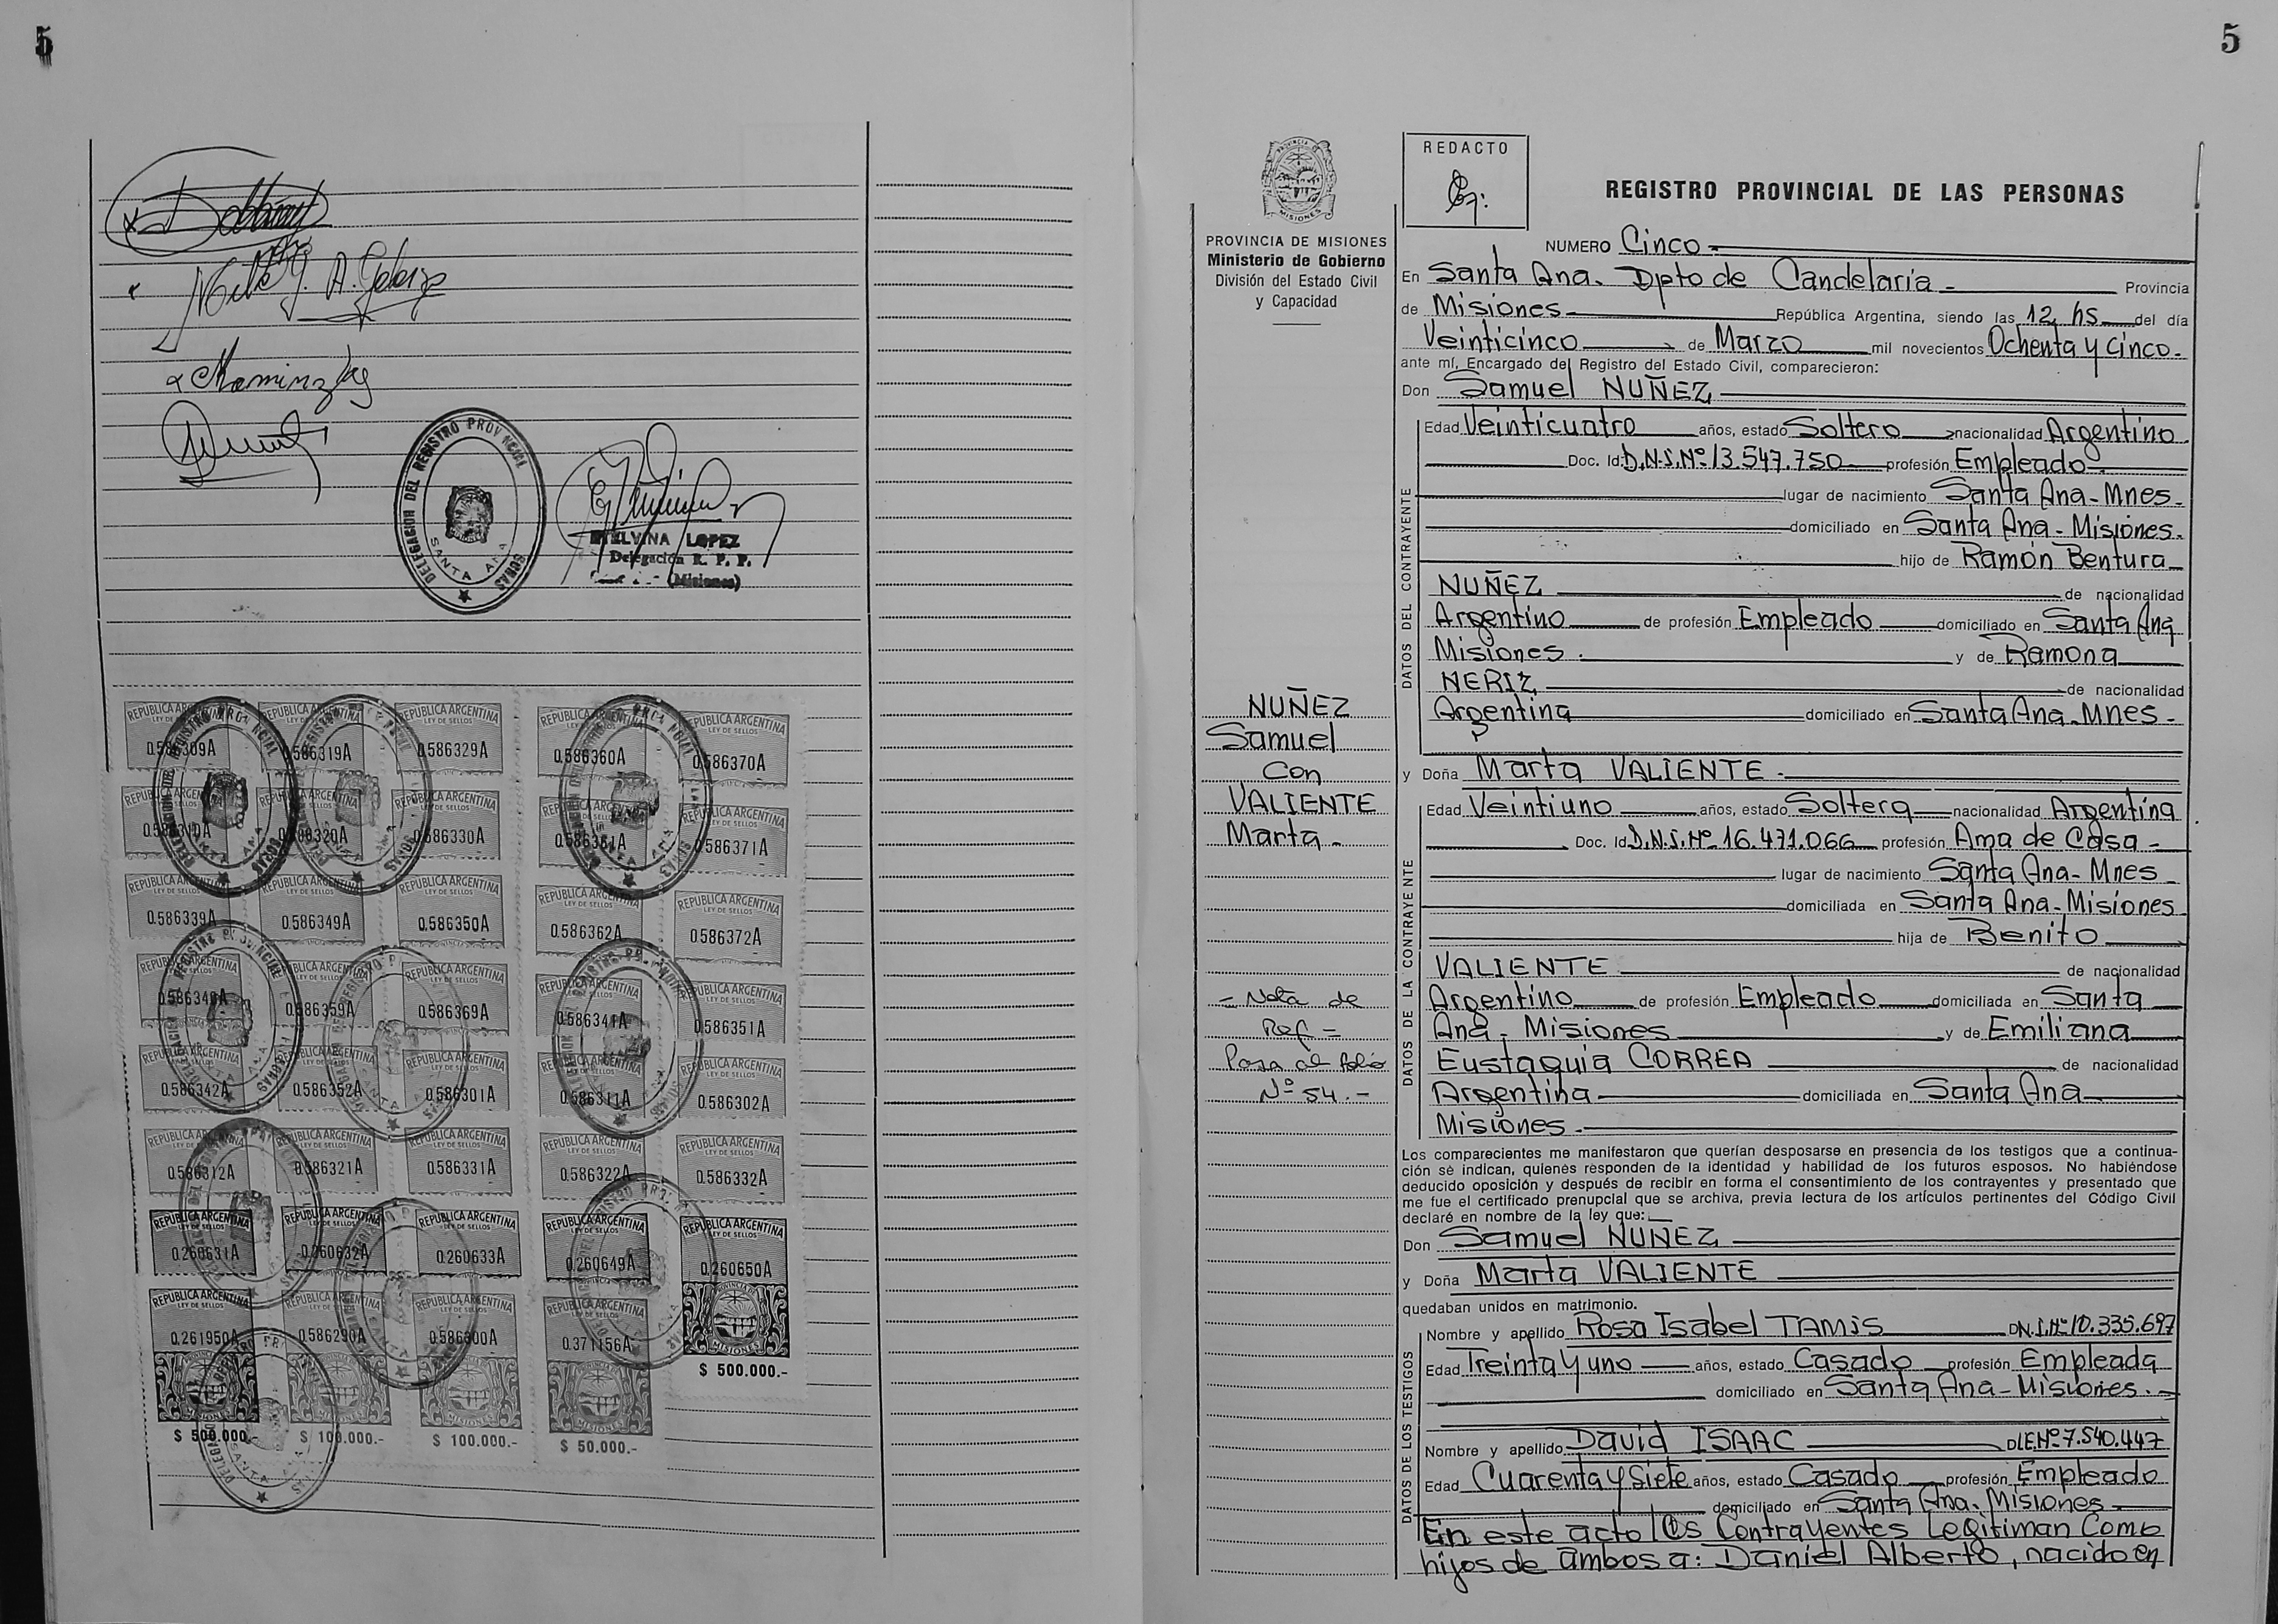 5
DELEGACION DEL REGISTRO PROVINCIAL
SANTA ANA
LOPEZ
Delegación R. P. P.
(Misiones)
REPUBLICA ARGENTINA
LEY DE SELLOS
0.586309A
0.586319A
0.586329A
0.586360A
0.586370A
0.586320A
0.586330A
0.586371A
0.586339A
0.586349A
0.586350A
0.586362A
0.586372A
0.586340A
0.586359A
0.586369A
0.586341A
0.586351A
0.586342A
0.586352A
0.586301A
0.586311A
0.586302A
0.586312A
0.586321A
0.586331A
0.586322A
0.586332A
0.260631A
0.260632A
0.260633A
0.260649A
0.260650A
0.261950A
0.586290A
0.586300A
0.371156A
$ 500.000.-
$ 500.000.-
$ 100.000.-
$ 100.000.-
$ 50.000.-
5
PROVINCIA DE MISIONES
Ministerio de Gobierno
División del Estado Civil
y Capacidad
NUÑEZ
Samuel
Con
VALIENTE
Marta -
- Nota de
Ref =
Pasa al folio
Nº 54. -
REDACTO
REGISTRO PROVINCIAL DE LAS PERSONAS
NUMERO Cinco -
En Santa Ana. Dpto de Candelaria - Provincia
de Misiones - República Argentina, siendo las 12 hs del día
Veinticinco de Marzo mil novecientos Ochenta y Cinco.
ante mí, Encargado del Registro del Estado Civil, comparecieron:
Don Samuel NUÑEZ
DATOS DEL CONTRAYENTE
Edad Veinticuatro años, estado Soltero nacionalidad Argentino
Doc. Id: D.N.I. Nº 13.547.750 profesión Empleado
lugar de nacimiento Santa Ana - Mnes -
domiciliado en Santa Ana - Misiones.
hijo de Ramón Bentura
NUÑEZ de nacionalidad
Argentino de profesión Empleado domiciliado en Santa Ana
Misiones. y de Ramona
NERIZ de nacionalidad
Argentina domiciliado en Santa Ana - Mnes -
y Doña Marta VALIENTE.
DATOS DE LA CONTRAYENTE
Edad Veintiuno años, estado Soltera nacionalidad Argentina
Doc. Id. D.N.I. Nº 16.471.066 profesión Ama de Casa -
lugar de nacimiento Santa Ana - Mnes -
domiciliada en Santa Ana - Misiones
hija de Benito
VALIENTE de nacionalidad
Argentino de profesión Empleado domiciliada en Santa
Ana - Misiones y de Emiliana
Eustaquia CORREA de nacionalidad
Argentina domiciliada en Santa Ana
Misiones.
Los comparecientes me manifestaron que querían desposarse en presencia de los testigos que a continua-
ción se indican, quienes responden de la identidad y habilidad de los futuros esposos. No habiéndose
deducido oposición y después de recibir en forma el consentimiento de los contrayentes y presentado que
me fue el certificado prenupcial que se archiva, previa lectura de los artículos pertinentes del Código Civil
declaré en nombre de la ley que:
Don Samuel NUÑEZ
y Doña Marta VALIENTE
quedaban unidos en matrimonio.
DATOS DE LOS TESTIGOS
Nombre y apellido Rosa Isabel TAMIS D.N.I. Nº 10.335.697
Edad Treinta y uno años, estado Casado profesión Empleada
domiciliado en Santa Ana - Misiones. -
Nombre y apellido David ISAAC DLE. Nº 7.540.447
Edad Cuarenta y Siete años, estado Casado profesión Empleado
domiciliado en Santa Ana. Misiones
En este acto los Contrayentes Legitiman Como
hijos de ambos a: Daniel Alberto, nacido en